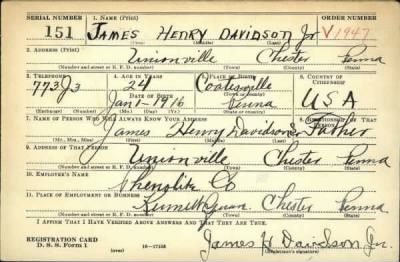 SERIAL NUMBER 1. NAME (Print) ORDER NUMBER
151 JAMES HENRY DAVIDSON Jr V1947
(First) (Middle) (Last)
2. ADDRESS (Print)
Unionville Chester Penna
(Number and street or R. F. D. number) (Town) (County) (State)
3. TELEPHONE 4. AGE IN YEARS 5. PLACE OF BIRTH 6. COUNTRY OF CITIZENSHIP
773J3 24 Coatesville USA
DATE OF BIRTH
Jan 1-1916 Penna
(Exchange) (Number) (Mo.) (Day) (Yr.) (State or country)
7. NAME OF PERSON WHO WILL ALWAYS KNOW YOUR ADDRESS 8. RELATIONSHIP OF THAT PERSON
James Henry Davidson Sr Father
(Mr., Mrs., Miss) (First) (Middle) (Last)
9. ADDRESS OF THAT PERSON
Unionville Chester Penna
(Number and street or R. F. D. number) (Town) (County) (State)
10. EMPLOYER'S NAME
Phenolite Co
11. PLACE OF EMPLOYMENT OR BUSINESS
Kennett Square Chester Penna
(Number and street or R. F. D. number) (Town) (County) (State)
I AFFIRM THAT I HAVE VERIFIED ABOVE ANSWERS AND THAT THEY ARE TRUE.
REGISTRATION CARD
D. S. S. Form 1 (over) 16-17105 James H Davidson Jr.
(Registrant's signature)